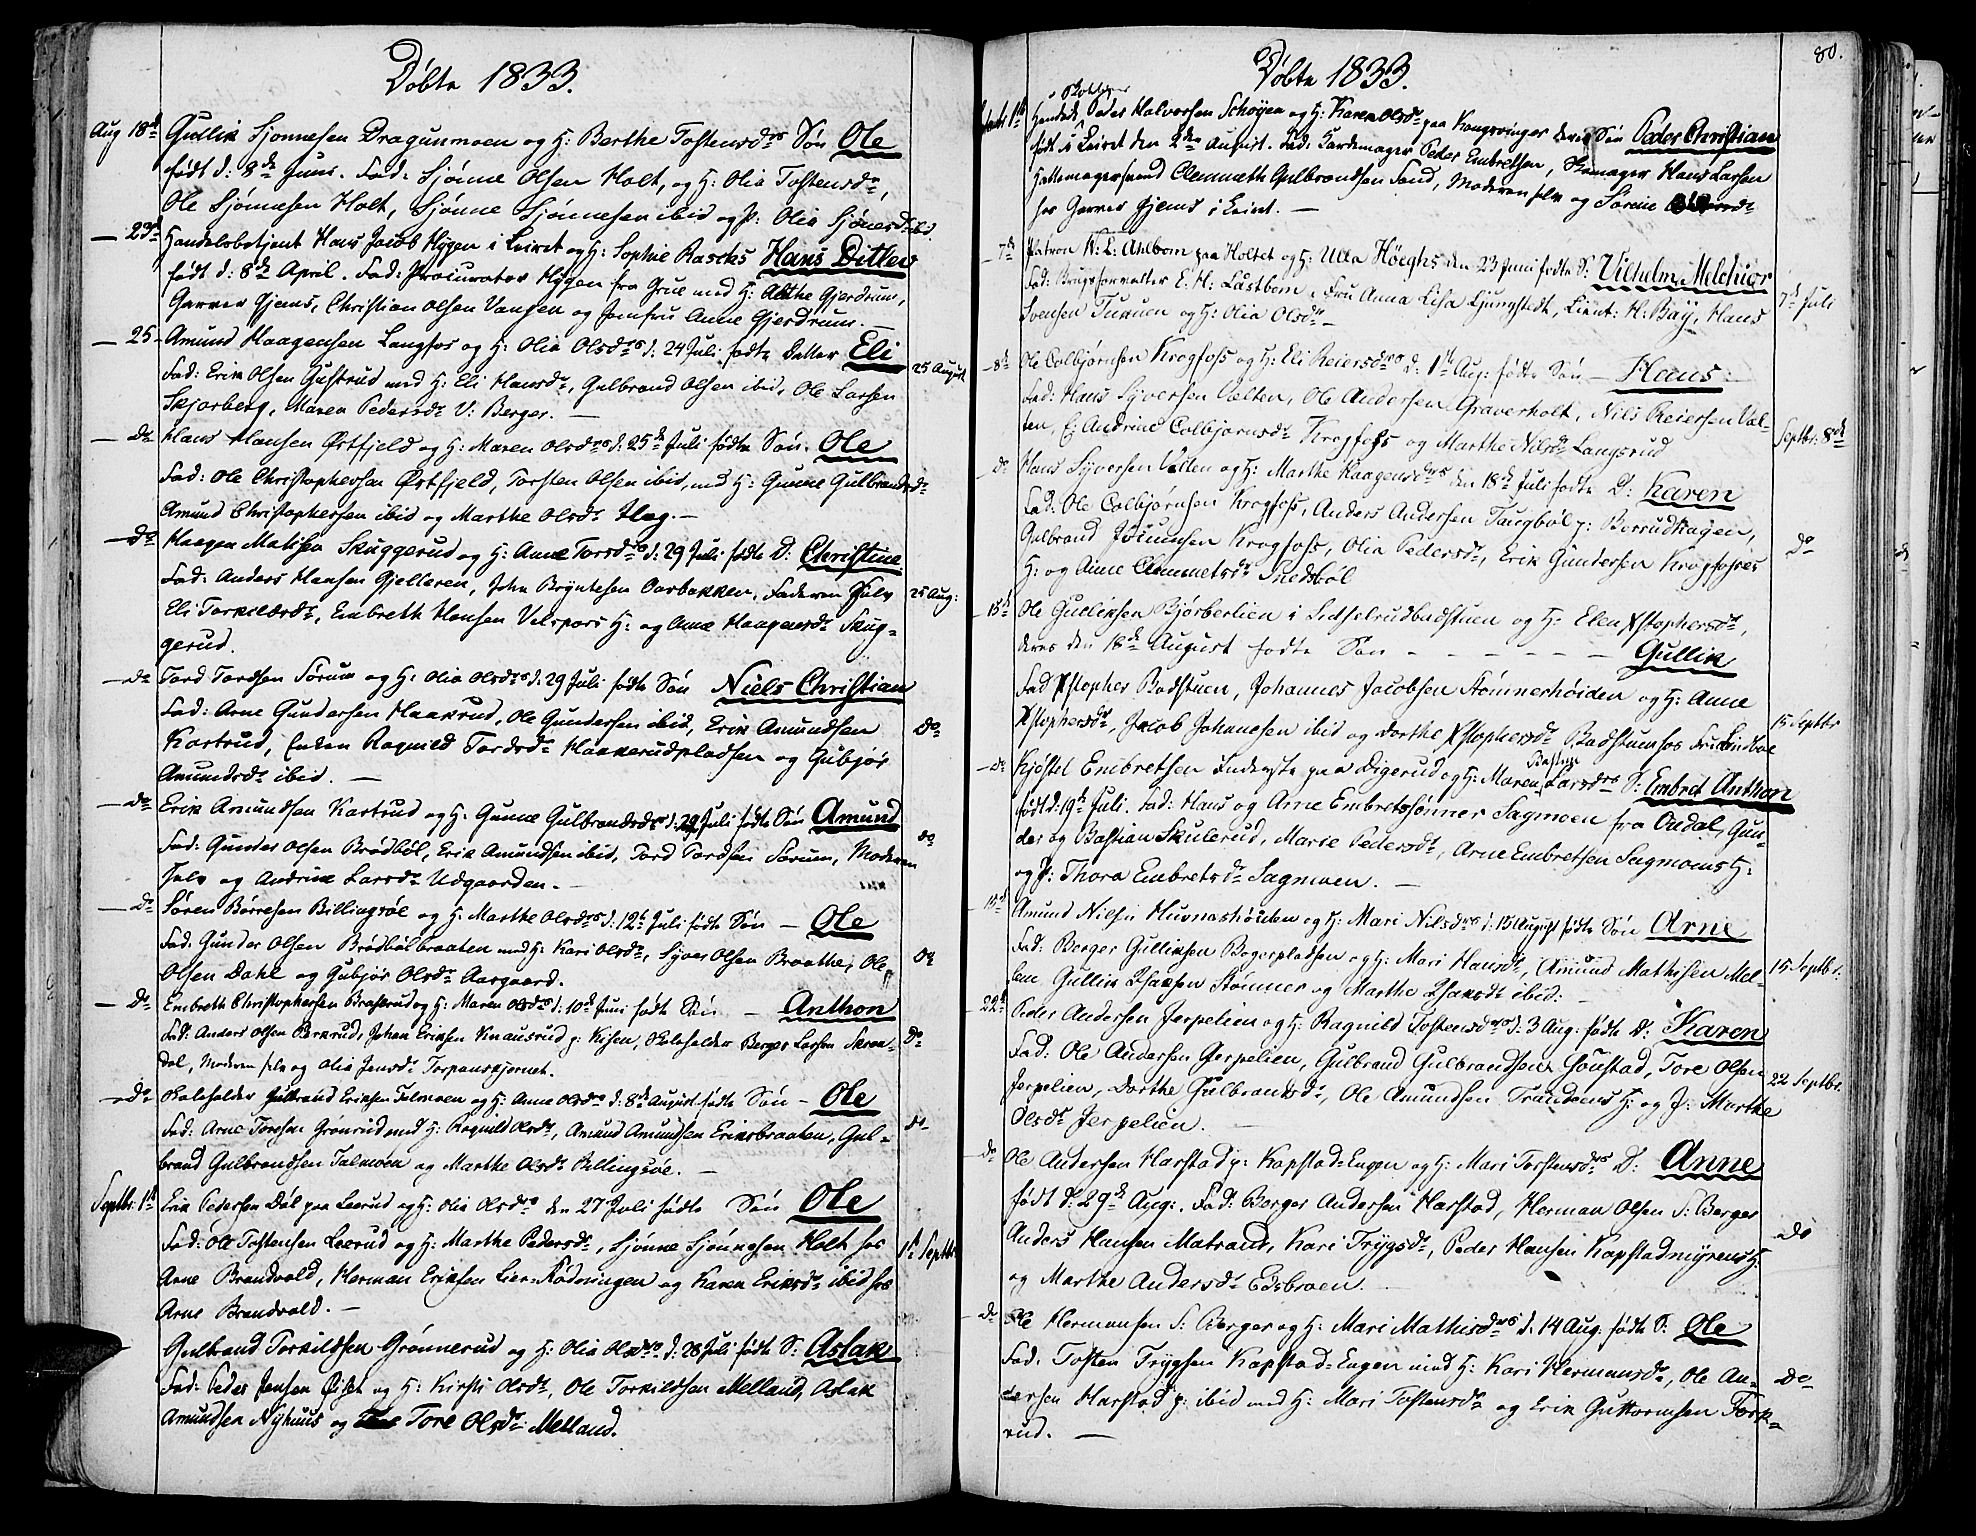 Döbte 1833.
Aug 18d Gullik Sjonnesen Dragunmoen og H: Berthe Tostensdrs Sön Ole
födt d: 8de Juni. Fad: Sjönne Olsen Holt, og H: Olia Tostensdr,
Ole Sjönnesen Holt, Sjönne Sjönnesen ibid og P: Olia Sjönesdr ibid.
— 23d Handelsbetjent Hans Jacob Hygen i Leiret og H: Sophie Raschs Hans Ditlev
födt d: 8de April. Fad: Procurator Hygen fra Grue med H: Gjerdrum,
Garver Gjems, Christian Olsen Vangen og Jomfru Anne Gjerdrum. —
— 25 Amund Haagensen Langfos og H: Olia Olsdrs d: 24 Juli födte Datter Eli
25 August
Fad: Erik Olsen Gustrud med H: Eli Hansdr, Gulbrand Olsen ibid, Ole Larsen
Skjarberg, Maren Pedersdr V: Berger. —
— do Hans Hansen Östfjeld og H: Maren Olsdrs d: 25d Juli födte Sön. Ole
Fad: Ole Christophersen Östfjeld, Torsten Olsen ibid, med H: Gunne Gulbrandsdr
Amund Christophersen ibid og Marthe Olsdr Hag. —
— do Haagen Matisen Skuggerud og H: Anne Torsdrs d: 29 Juli födte D: Christine
Fad: Anders Hansen Gjelleren, John Bryntesen Aarbakken, Faderen Selv
25 Aug:
Eli Torkildsdr, Embreth Hansen Velspors H: og Ane Haagensdr Skug-
gerud.
— do Tord Tordsen Sörum og H: Olia Olsdrs d: 29 Juli födte Sön Niels Christian
Fad: Arne Gundersen Haakrud, Ole Gundersen ibid, Erik Amundsen
do
Kartrud, Enken Ragnild Tordsdr Haakerudpladsen og Gubjör
Amundsdr ibid. —
— do Erik Amundsen Kartrud og H: Gunne Gulbrandsdrs d: 29 Juli födte Sön Amund
Fad: Gunder Olsen Brödböl, Erik Amundsen ibid, Tord Tordsen Sorum, Moderen
do
Selv og Andrine Larsdr Udgaarden. —
— do Sören Börresen Billingsöe og H: Marthe Olsdrs d: 12d Juli födte Sön — Ole
Fad: Gunder Olsen Brödbölbraaten med H: Kari Olsdr, Syver Olsen Braathe, Ole
do
Olsen Dahl og Gubjör Olsdr Aargaard.
— do Embreth Christophersen Brasterud og H: Maren Olsdrs d: 10d Juni födt Sön — Anthon
Fad: Anders Olsen Berkrud, Johan Eriksen Knausrud p: Kisen, Kuleholder Berger Larsen Skren-
do
dal, Moderen selv og Olia Jensdr Torpenskjernet.
— do Kuleholder Gulbrand Eriksen Talmoen og H: Anne Olsdrs d: 8de August födte Sön — Ole
Fad: Arne Toresen Grönrud med H: Ragnild Olsdr, Amund Amundsen Eriksbraaten, Gul-
do
brand Gulbrandsen Talmoen og Marthe Olsdr Billingsöe. —
Septbr: 1d Erik Pedersen Döl paa Leerud og H: Olia Olsdrs den 27 Juli födte Sön Ole
Fad: Ole Tostensen Leerud og H: Marthe Pedersdr, Sjönne Sjönnesen Holt hos
1d Septbr
Arne Brandvold, Herman Eriksen Lier-Rödningen og Karen Eriksdr ibid hos
Arne Brandvold. —
Gulbrand Torkildsen Grönnerud og H: Olia Olsdrs d: 28 Juli födte S: Aslak
Fad: Peder Jensen og H: Kirsti Olsdr, Ole Torkildsen Melland, Aslak
Amundsen Nyhuus og Tore Olsdr Melland.
80.
Döbte 1833.
Peder Halvorsen Schöyen og H: Karen Olsdr paa Kongsvinger deres Sön Peder Christian
födt i Leiret den 2den August. Fad: Peder Embretsen, Skomager Hans Larsen
Hattemagersvend Clemmeth Gulbrandsen Sand, Moderen selv og Sorine
hos Garver Gjems i Leiret. —
— 7d Patron W: L: Ahlbom paa Holtet og H: Ulla Höeghs den 23 Juni födte S: Vilhelm Melchior
Fad: Brugsforvalter E. H: Låstbom, Fru Anna Lisa Ljungstedt, Lieut: H: Bäy, Hans
7d Juli
Svensen Turuen og H: Olia Olsdr —
— 8d Ole Colbjörnsen Krogfoss og H: Eli Reiersdrs d: 1ste Aug: födte Sön — Hans
Fad: Hans Syversen Velten, Ole Andersen Graverholt, Nils Reiersen Val-
ten, P: Andrine Colbjornsdr Krogfoss og Marthe Nilsdr Langsrud
Septbr: 8de
do Hans Syversen Velten og H: Marthe Haagensdrs den 18d Juli födte D: Karen
Fad: Ole Colbjörnsen Krogfoss, Anders Andersen Taugböl p: Berrudhagen,
Gulbrand Krogfoss, Olia Pedersdr, Erik Gundersen Krogfosses
do
H: og Anne Clemmetsdr Snedsböl
— 15d Ole Gulliksen Björberlien i Sidselrudbadstuen og H: Elen Xstophersdr,
deres den 18de August födte Sön - - - - - Gullik
Fad Xstopher Badstuen, Johannes Jacobsen Stömnerhöiden og H: Anne
Xstophersdr, Jacob Johannesen ibid og Dorthe Xstophersdr Badstuen hos
15 Septbr
— do Kjöstel Embretsen Inderste paa Digerud og H: Maren Larsdrs S: Embret Anthon
födt d: 19d Juli. Fad: Hans og Arne Embretssönner Sagmoen fra Oudal, Gun-
der og Bastian Skulerud, Marie Pedersdr, Arne Embretsen Sagmoens H:
og P: Thora Embretsdr Sagmoen. —
— 15d Amund Nilsen og H: Mari Nilsdrs d: 15 August födte Sön Arne
Fad: Berger Gulliksen Bogerpladsen og H: Mari Hansdr, Amund Mathisen Mel-
15 Septbr:
len Gullik Isaksen Stömner og Marthe Isaksdr ibid: —
22d Peder Andersen Jerpelien og H: Ragnild Tostensdrs d: 3 Aug: födte D: Karen
Fad: Ole Andersen Gerpelien, Gulbrand Gulbrandsen Gonstad, Tore Olsen
Jerpelien, Dorthe Gulbransdr, Ole Amundsen Trundems H: og P: Marthe
22 Septbr.
Olsdr Jerpelien. —
do Ole Andersen Harstad p: Kapstad-Eugen og H: Mari Torstensdrs D: Anne
födt d: 29de Aug:. Fad: Berger Andersen Harstad, Herman Olsen S: Berger
do
Anders Hansen Matrand, Kari Trygsdr, Peder Hansen Kapstadmyrens H:
og Marthe Andersdr Edsbroen.
— do Ole Hermansen S: Berger og H: Mari Mathisdrs d. 14 Aug: födte S: Ole
Fad. Tosten Trygsen Kapstad-Eugen med H: Kari Hermansdr, Ole An-
do
dersen Harstad p: ibid med H: Mari Tostensdr og Erik Guttormsen Tork-
rud. —